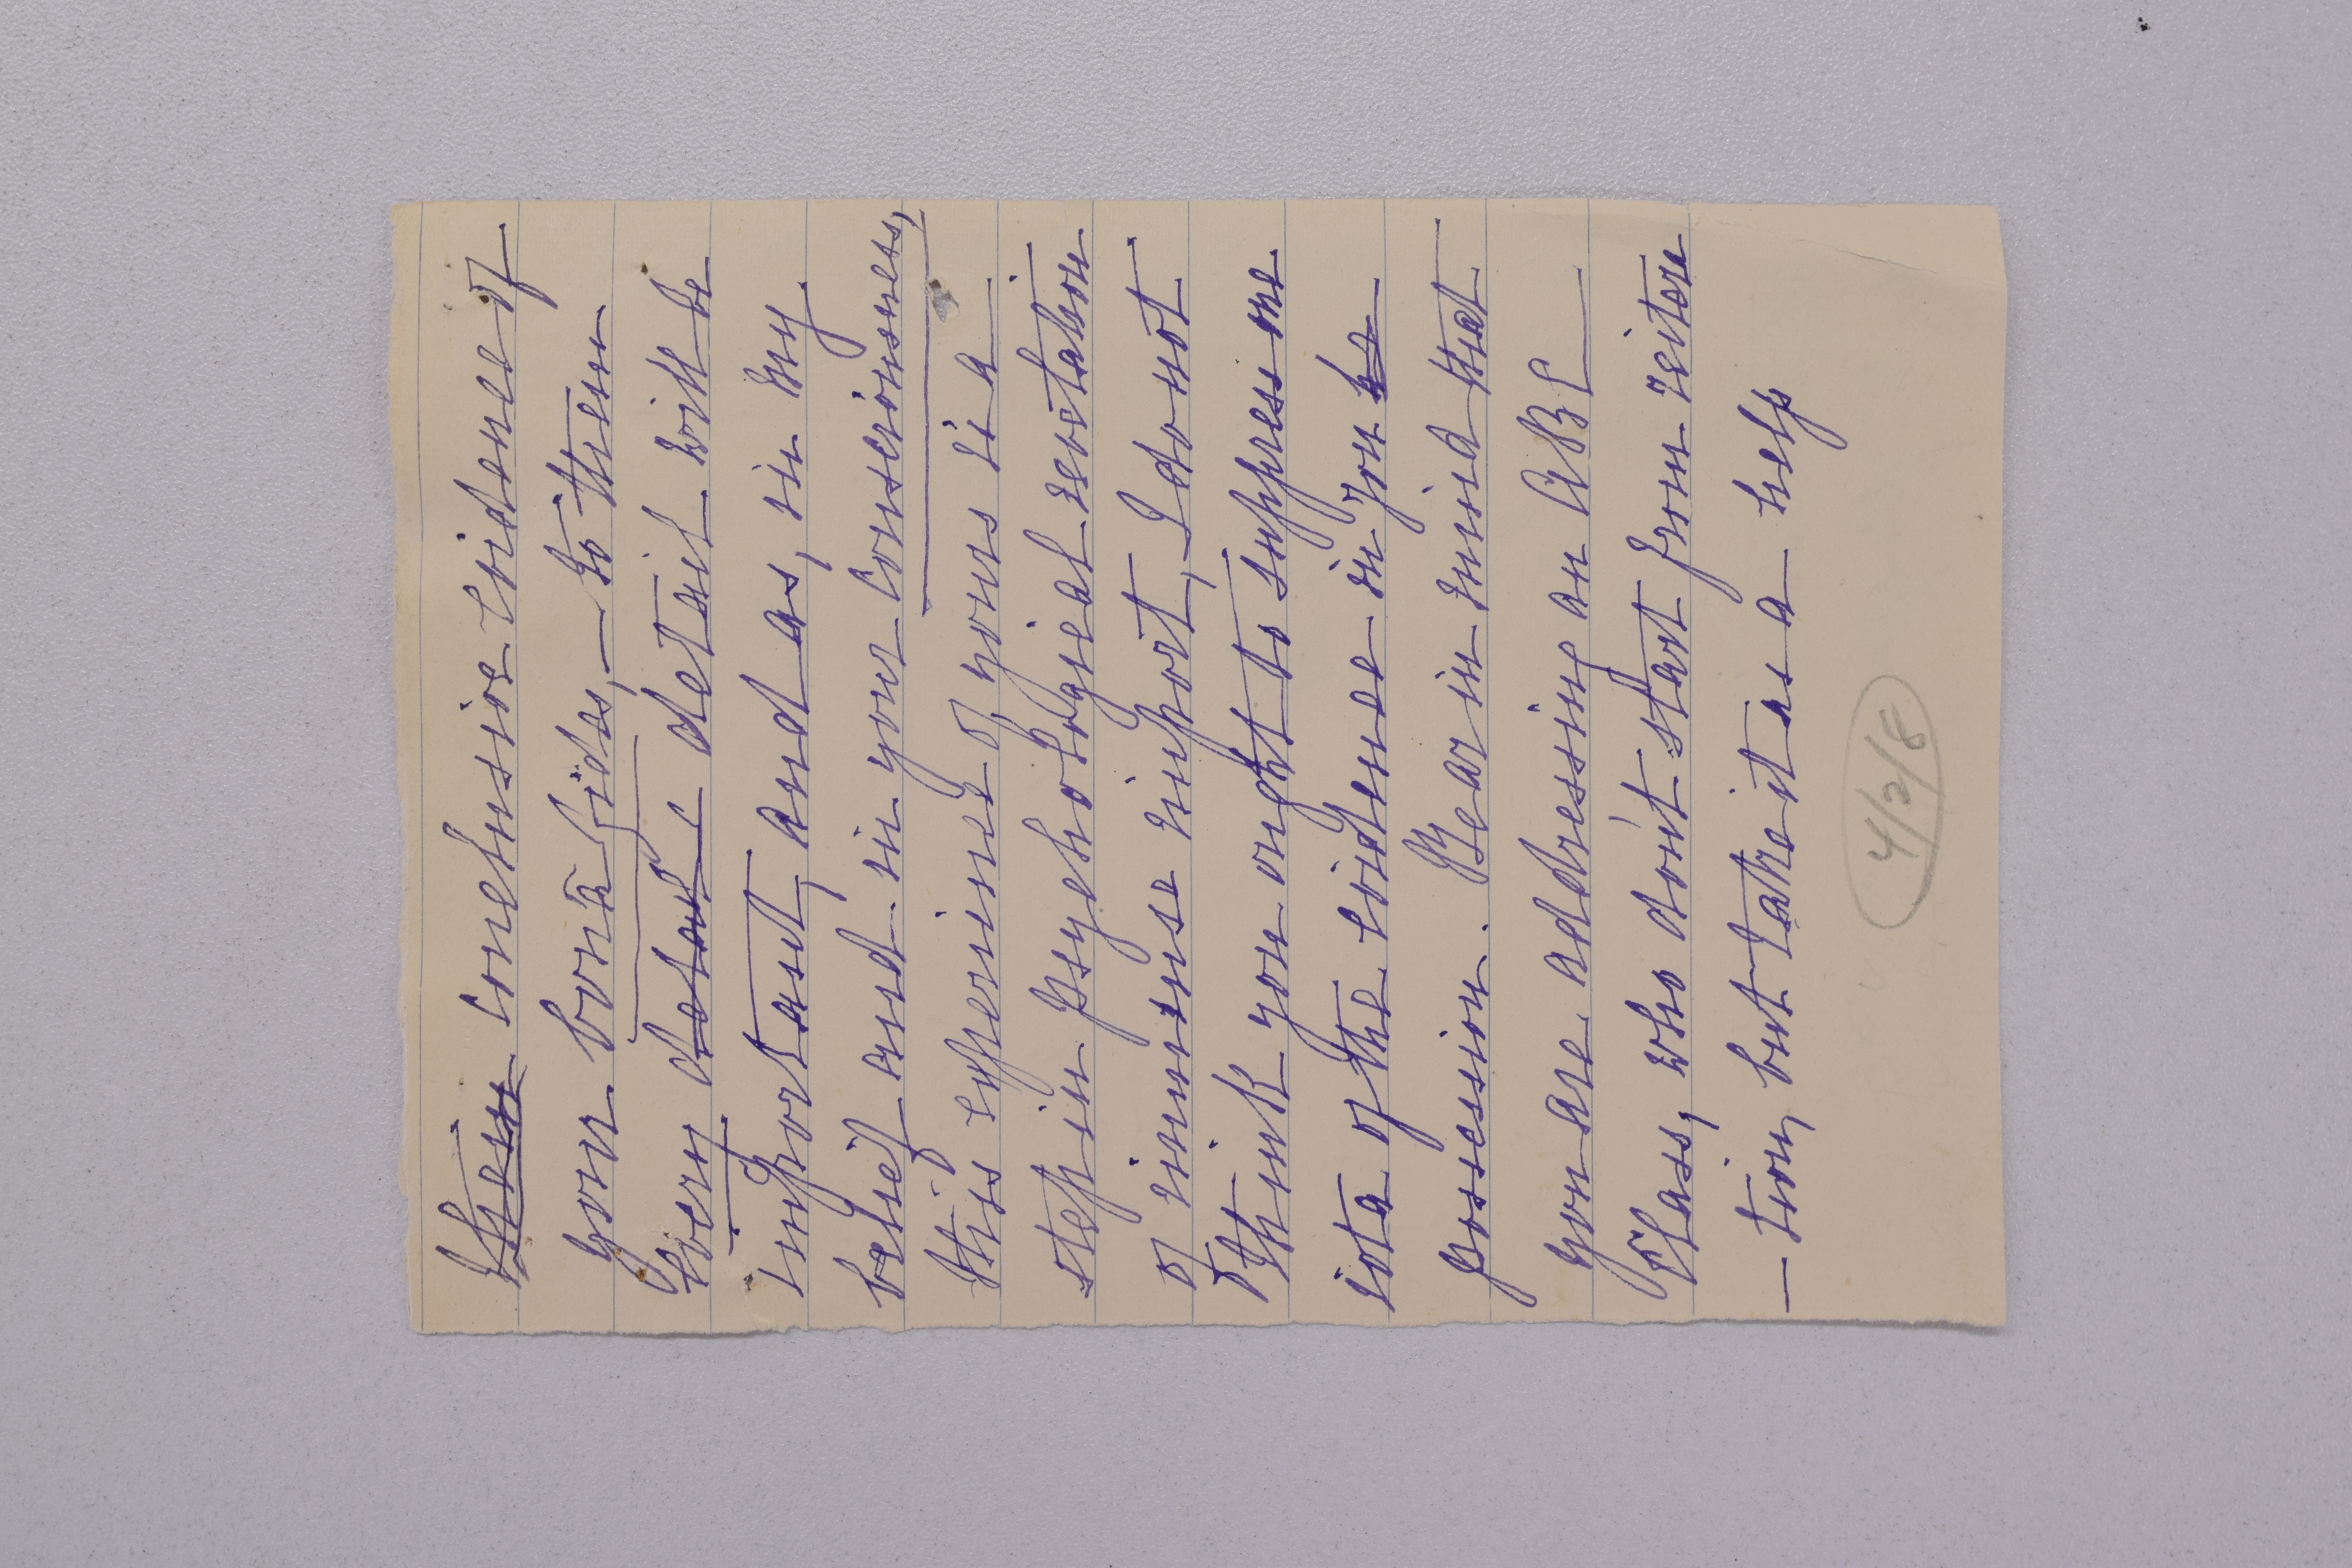 them conclusive evidence of
your bonâ fides, — to them
every detail detail will be
important, and as, in my
belief and in your consciousness,
this experience of yours is a
step in psychological revelation
of immense import, I do not
think you ought to suppress one
iota of the evidence in your
possession. Bear in mind that
you are addressing an ABC
Class, who don't start from reitera
—tion, but take it as a help
4/2/8